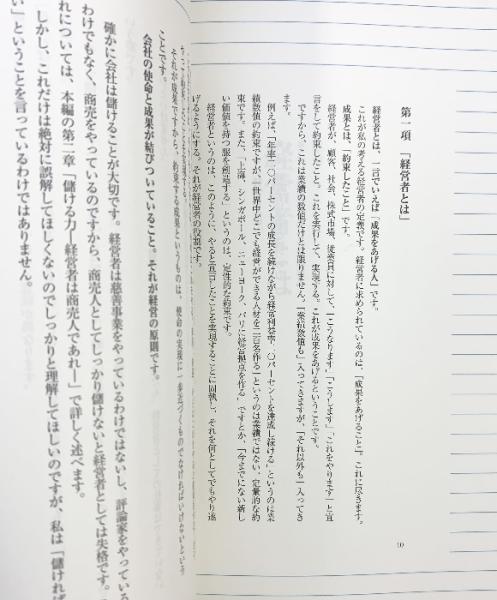 第一項　「経営者とは」
経営者とは、一言でいえば「成果をあげる人」です。
これが私の考える経営者の定義です。経営者に求められているのは、「成果をあげること」。これに尽きます。
成果とは、「約束したこと」です。
経営者が、顧客、社会、株式市場、従業員に対して、「こうなります」「こうします」「これをやります」と宣
言をして約束したこと。これを実行して、実現する。これが成果をあげるということです。
ですから、これは業績の数値だけとは限りません。「業績数値も」入ってきますが、「それ以外も」入ってき
ます。
例えば、「年率二〇パーセントの成長を続けながら経常利益率二〇パーセントを達成し続ける」というのは業
績数値の約束ですが、「世界中どこでも経営ができる人材を二百名作る」というのは業績ではない、定量的な約
束です。また、「上海、シンガポール、ニューヨーク、パリに経営拠点を作る」ですとか、「今までにない新し
い価値を持つ服を創造する」というのは、定性的な約束です。
経営者というのは、このように、やると宣言したことを実現することに固執し、それを何としてでもやり遂
げるようにする。それが経営者の役割です。
10
それが成果ですから、約束する成果というものは、使命の実現に一歩近づくものでなければいけないという
ことです。
会社の使命と成果が結びついていること。それが経営の原則です。
確かに会社は儲けることが大切です。経営者は慈善事業をやっているわけではないし、評論家をやっている
わけでもなく、商売をやっているのですから、商売人としてしっかり儲けないと経営者としては失格です。
れについては、本編の第二章「儲ける力―経営者は商売人であれ―」で詳しく述べます。
しかし、これだけは絶対に誤解してほしくないのでしっかりと理解してほしいのですが、私は「儲ければ
い」ということを言っているわけではありません。